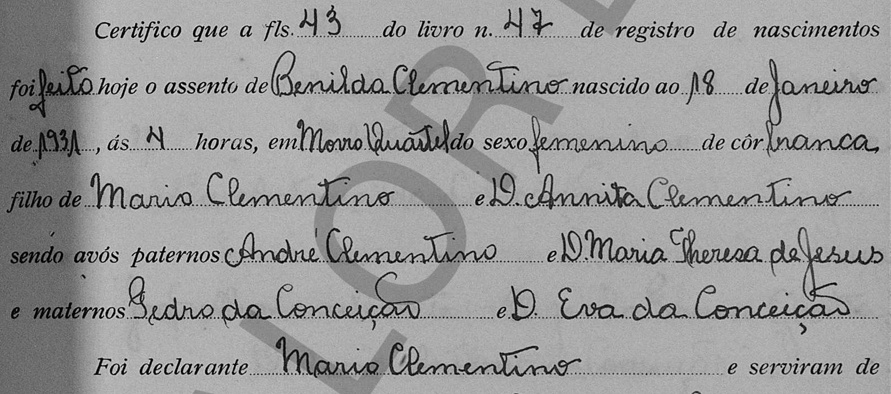 Certifico que a fls. 43 do livro n. 47 de registro de nascimentos
foi feito hoje o assento de Benilda Clementino nascido ao 18 de Janeiro
de 1931, ás 4 horas, em Morro Quartel do sexo femenino de côr branca,
filho de Mario Clementino e D. Annita Clementino
sendo avós paternos André Clementino e D. Maria Theresa de Jesus
e maternos Pedro da Conceição e D. Eva da Conceição
Foi declarante Mario Clementino e serviram de